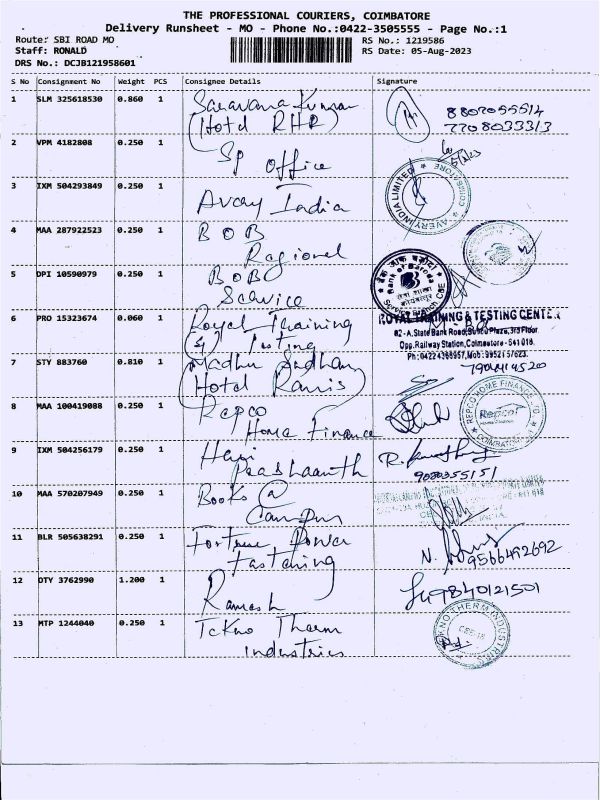 THE PROFESSIONAL COURIERS, COIMBATORE
Delivery Runsheet - MO - Phone No.:0422-3505555 - Page No.:1
Route: SBI ROAD MO
RS No.: 1219586
Staff: RONALD
RS Date: 05-Aug-2023
DRS No.: DCJB121958601
S No Consignment No Weight PCS Consignee Details Signature
1 SLM 325618530 0.860 1 Saravana Kumar
(Hotel RHR)
8807055514
7708033313
2 VPM 4182808 0.250 1 Sp office
3 IXM 504293849 0.250 1 Avery India
AVERY INDIA LIMITED
COIMBATORE
4 MAA 287922523 0.250 1 BOB
Regional
5 DPI 10590979 0.250 1 BOB
Service
Bank of Baroda
6 PRO 15323674 0.060 1 Royal Training
& Testing
ROYAL TRAINING & TESTING CENTER
82-A, State Bank Road, Plaza, 3rd Floor
Opp. Railway Station, Coimbatore - 641 018.
7 STY 883760 0.810 1 Madhu Sudhan
(Hotel Ramis)
8 MAA 100419088 0.250 1 Repco
Home Finance
REPCO HOME FINANCE LTD.
Repco
COIMBATORE
9 IXM 504256179 0.250 1 Hari
Prashaanth
9080355151
10 MAA 570207949 0.250 1 Books @
Campus
11 BLR 505638291 0.250 1 Fortune Power
Fastening
9566492692
12 DTY 3762990 1.200 1 Ramesh
9840121501
13 MTP 1244040 0.250 1 Tekno Therm
Industries
TEKNO THERM INDUSTRIES
CBE-18